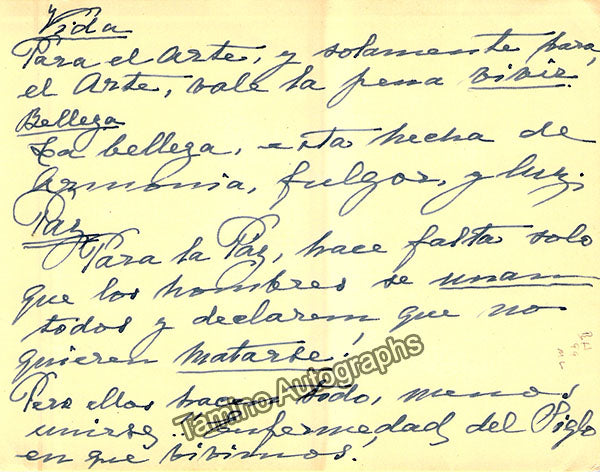 Vida
Para el Arte, y solamente para
el Arte, vale la pena vivir.
Belleza
La belleza, esta hecha de
armonia, fulgor, y luz.
Paz
Para la Paz, hace falta solo
que los hombres se unan
todos y declaren que no
quieren matarse!
Pero ellos hacen todo, menos
unirse... Enfermedad del Siglo
en que vivimos.
Tamino Autographs